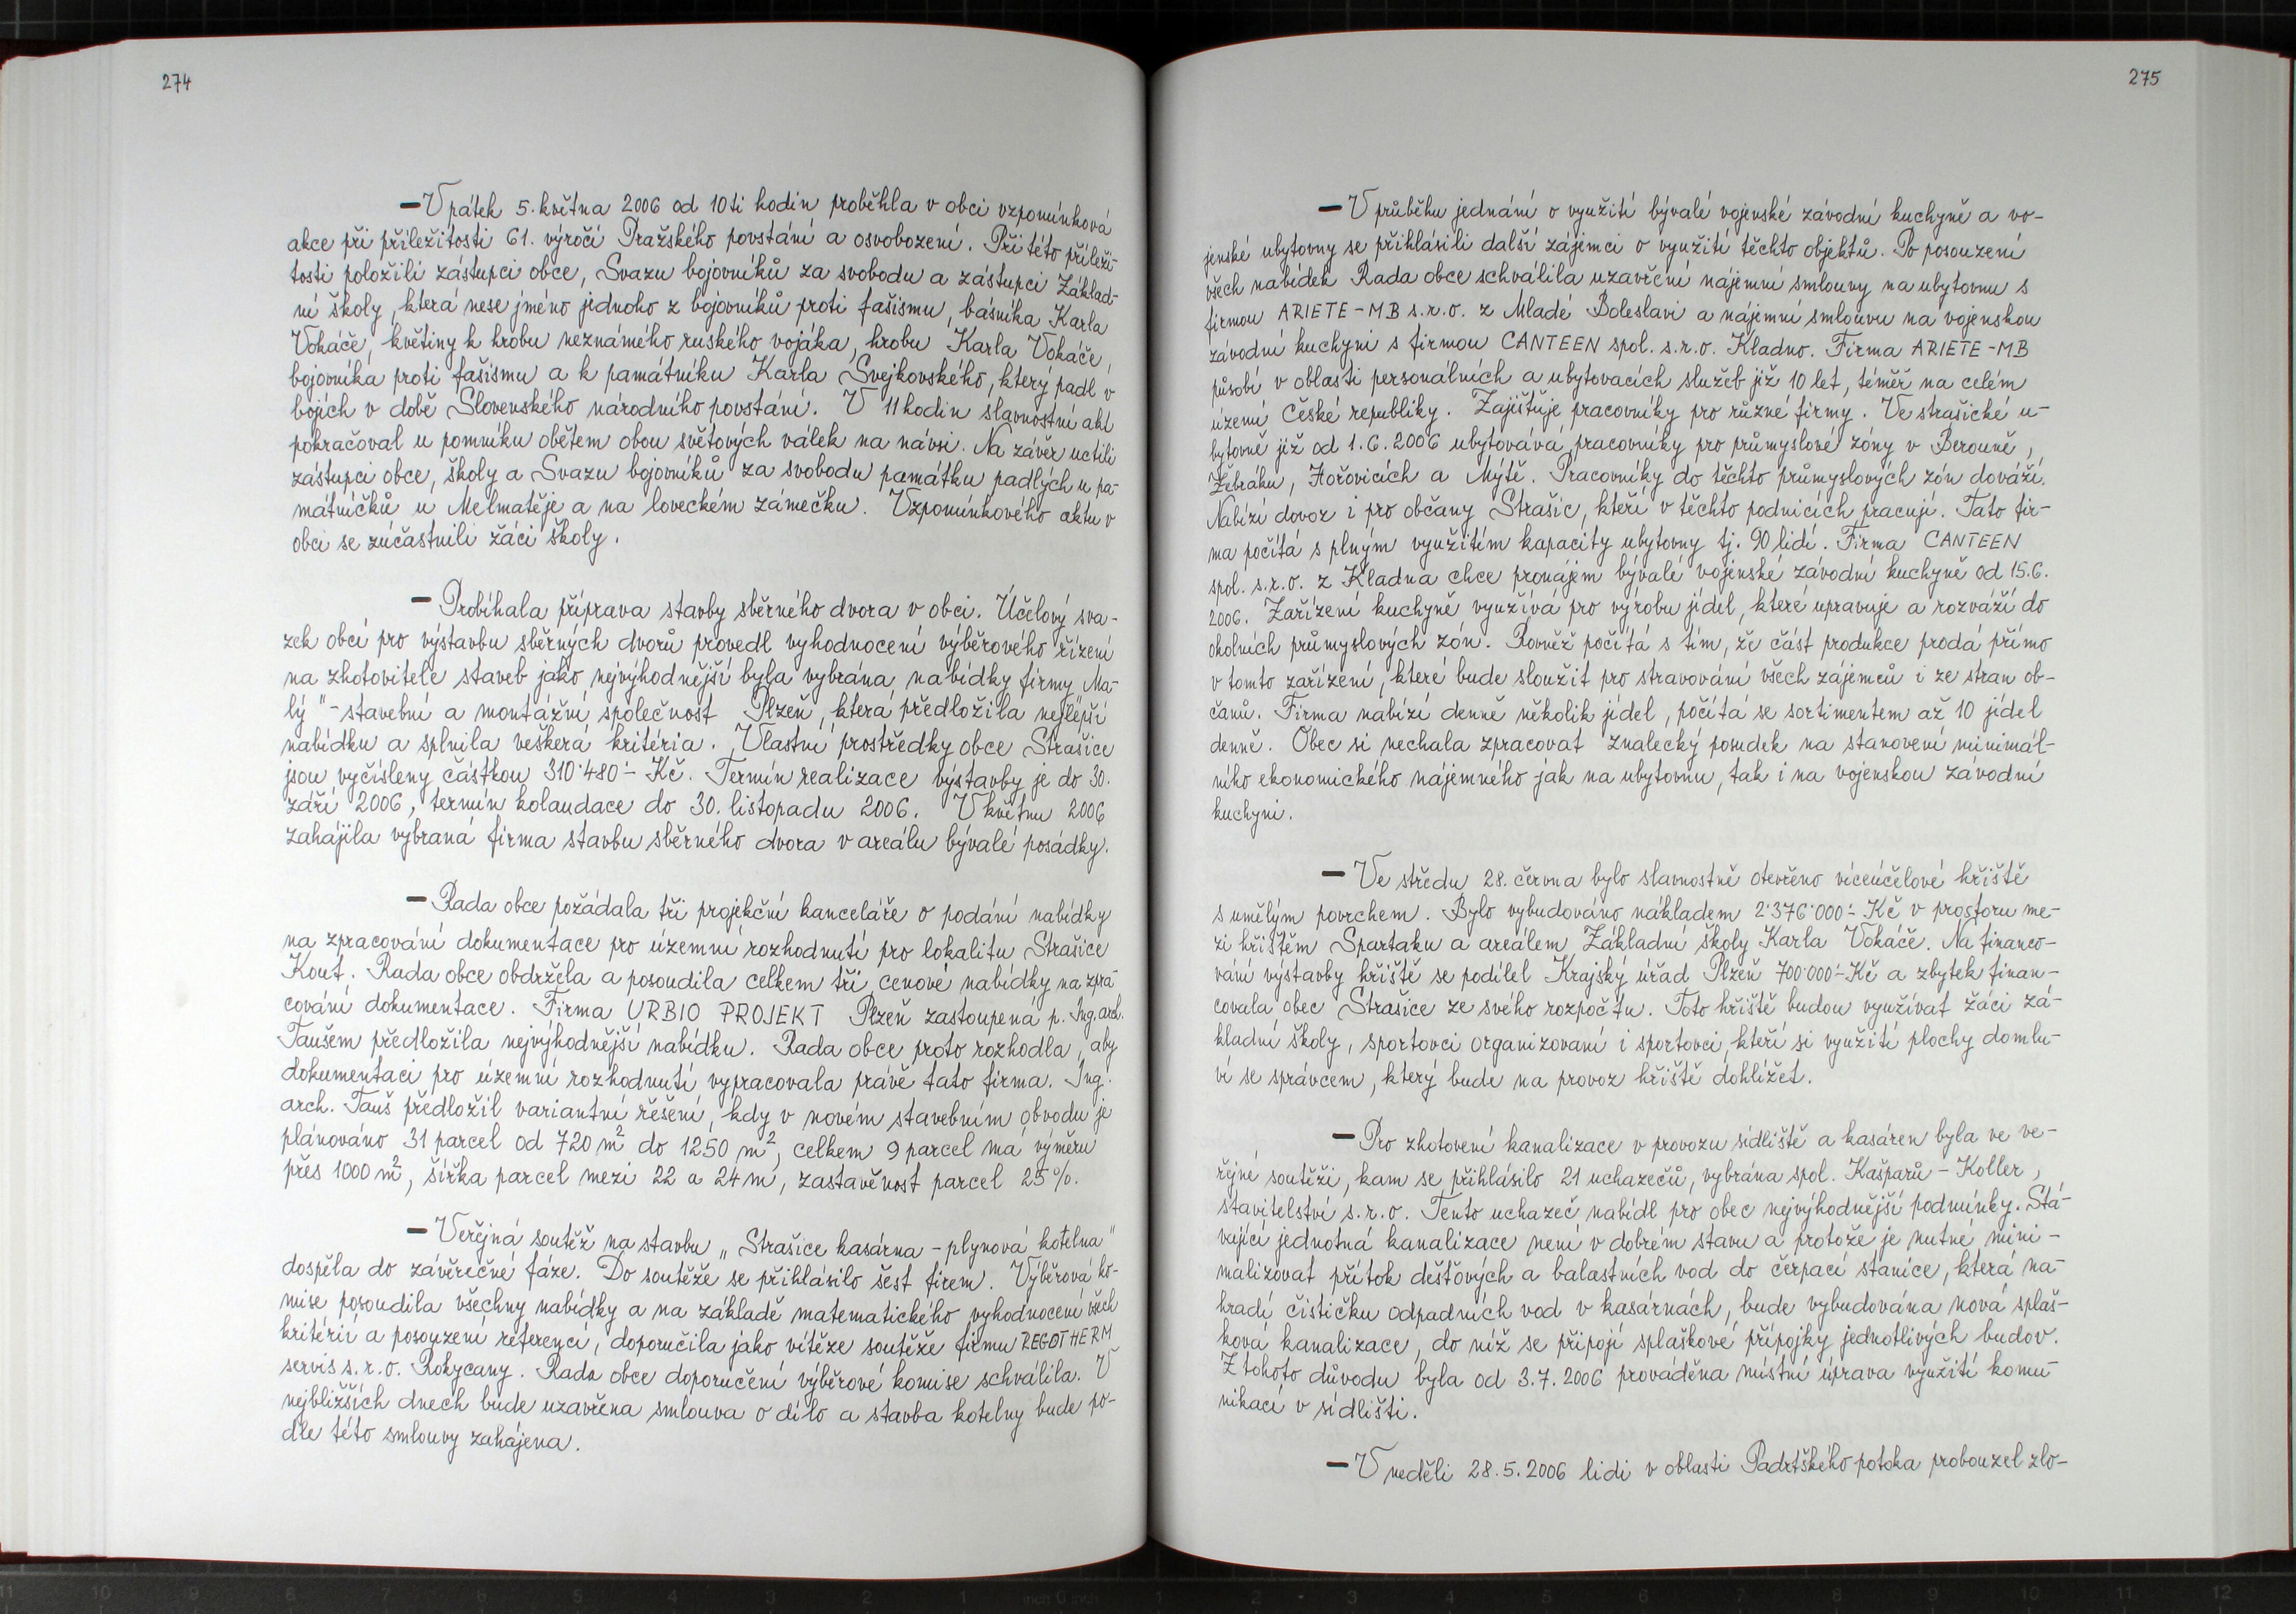 274
— V pátek 5. května 2006 od 10ti hodin proběhla v obci vzpomínková
akce při příležitosti 61. výročí Pražského povstání a osvobození. Při této příleži-
tosti položili zástupci obce, Svazu bojovníků za svobodu a zástupci Základ-
ní školy, která nese jméno jednoho z bojovníků proti fašismu, básníka Karla
Vokáče, květiny k hrobu neznámého ruského vojáka, hrobu Karla Vokáče,
bojovníka proti fašismu a k památníku Karla Svejkovského, který padl v
bojích v době Slovenského národního povstání. V 11 hodin slavnostní akt
pokračoval u pomníku obětem obou světových válek na návsi. Na závěr uctili
zástupci obce, školy a Svazu bojovníků za svobodu památku padlých u pa-
mátníčků u Melmatěje a na loveckém zámečku. Vzpomínkového aktu v
obci se zúčastnili žáci školy.
— Probíhala příprava stavby sběrného dvora v obci. Účelový sva-
zek obcí pro výstavbu sběrných dvorů provedl vyhodnocení výběrového řízení
na zhotovitele staveb jako nejvýhodnější byla vybrána nabídky firmy Ma-
lý" - stavební a montážní společnost Plzeň, která předložila nejlepší
nabídku a splnila veškerá kritéria. Vlastní prostředky obce Strašice
jsou vyčísleny částkou 310˙480˙- Kč. Termín realizace výstavby je do 30.
září 2006, termín kolaudace do 30. listopadu 2006. V květnu 2006
zahájila vybraná firma stavbu sběrného dvora v areálu bývalé posádky.
— Rada obce požádala tři projekční kanceláře o podání nabídky
na zpracování dokumentace pro územní rozhodnutí pro lokalitu Strašice
Kout. Rada obce obdržela a posoudila celkem tři cenové nabídky na zpra-
cování dokumentace. Firma URBIO PROJEKT Plzeň zastoupená p. Ing. arch.
Taušem předložila nejvýhodnější nabídku. Rada obce proto rozhodla, aby
dokumentaci pro územní rozhodnutí vypracovala právě tato firma. Ing.
arch. Tauš předložil variantní řešení, kdy v novém stavebním obvodu je
plánováno 31 parcel od 720 m² do 1250 m², celkem 9 parcel má výměru
přes 1000 m², šířka parcel mezi 22 a 24 m, zastavěnost parcel 25%.
— Veřejná soutěž na stavbu „Strašice kasárna - plynová kotelna"
dospěla do závěrečné fáze. Do soutěže se přihlásilo šest firem. Výběrová ko-
mise posoudila všechny nabídky a na základě matematického vyhodnocení všech
kritérií a posouzení referencí, doporučila jako vítěze soutěže firmu REGOTHERM
servis s.r.o. Rokycany. Rada obce doporučení výběrové komise schválila. V
nejbližších dnech bude uzavřena smlouva o dílo a stavba kotelny bude po-
dle této smlouvy zahájena.
275
— V průběhu jednání o využití bývalé vojenské závodní kuchyně a vo-
jenské ubytovny se přihlásili další zájemci o využití těchto objektů. Po posouzení
všech nabídek Rada obce schválila uzavření nájemní smlouvy na ubytovnu s
firmou ARIETE-MB s.r.o. z Mladé Boleslavi a nájemní smlouvu na vojenskou
závodní kuchyni s firmou CANTEEN spol. s.r.o. Kladno. Firma ARIETE-MB
působí v oblasti personálních a ubytovacích služeb již 10 let, téměř na celém
území České republiky. Zajišťuje pracovníky pro různé firmy. Ve strašické u-
bytovně již od 1.6.2006 ubytovává pracovníky pro průmyslové zóny v Berouně,
Žebráku, Hořovicích a Mýtě. Pracovníky do těchto průmyslových zón dováží.
Nabízí dovoz i pro občany Strašic, kteří v těchto podnicích pracují. Tato fir-
ma počítá s plným využitím kapacity ubytovny tj. 90 lidí. Firma CANTEEN
spol. s.r.o. z Kladna chce pronájem bývalé vojenské závodní kuchyně od 15.6.
2006. Zařízení kuchyně využívá pro výrobu jídel, které upravuje a rozváží do
okolních průmyslových zón. Rovněž počítá s tím, že část produkce prodá přímo
v tomto zařízení, které bude sloužit pro stravování všech zájemců i ze stran ob-
čanů. Firma nabízí denně několik jídel, počítá se sortimentem až 10 jídel
denně. Obec si nechala zpracovat znalecký posudek na stanovení minimál-
ního ekonomického nájemného jak na ubytovnu, tak i na vojenskou závodní
kuchyni.
— Ve středu 28. června bylo slavnostně otevřeno víceúčelové hřiště
s umělým povrchem. Bylo vybudováno nákladem 2˙376˙000˙- Kč v prostoru me-
zi hřištěm Spartaku a areálem Základní školy Karla Vokáče. Na financo-
vání výstavby hřiště se podílel Krajský úřad Plzeň 700˙000˙- Kč a zbytek finan-
covala obec Strašice ze svého rozpočtu. Toto hřiště budou využívat žáci zá-
kladní školy, sportovci organizovaní i sportovci, kteří si využití plochy domlu-
ví se správcem, který bude na provoz hřiště dohlížet.
— Pro zhotovení kanalizace v provozu sídliště a kasáren byla ve ve-
řejné soutěži, kam se přihlásilo 21 uchazečů, vybrána spol. Kašparů - Koller,
stavitelství s.r.o. Tento uchazeč nabídl pro obec nejvýhodnější podmínky. Stá-
vající jednotná kanalizace není v dobrém stavu a protože je nutné mini-
malizovat přítok dešťových a balastních vod do čerpací stanice, která na-
hradí čističku odpadních vod v kasárnách, bude vybudována nová splaš-
ková kanalizace, do níž se připojí splaškové přípojky jednotlivých budov.
Z tohoto důvodu byla od 3.7.2006 prováděna místní úprava využití komu-
nikací v sídlišti.
— V neděli 28.5.2006 lidi v oblasti Padrťského potoka probouzel zlo-